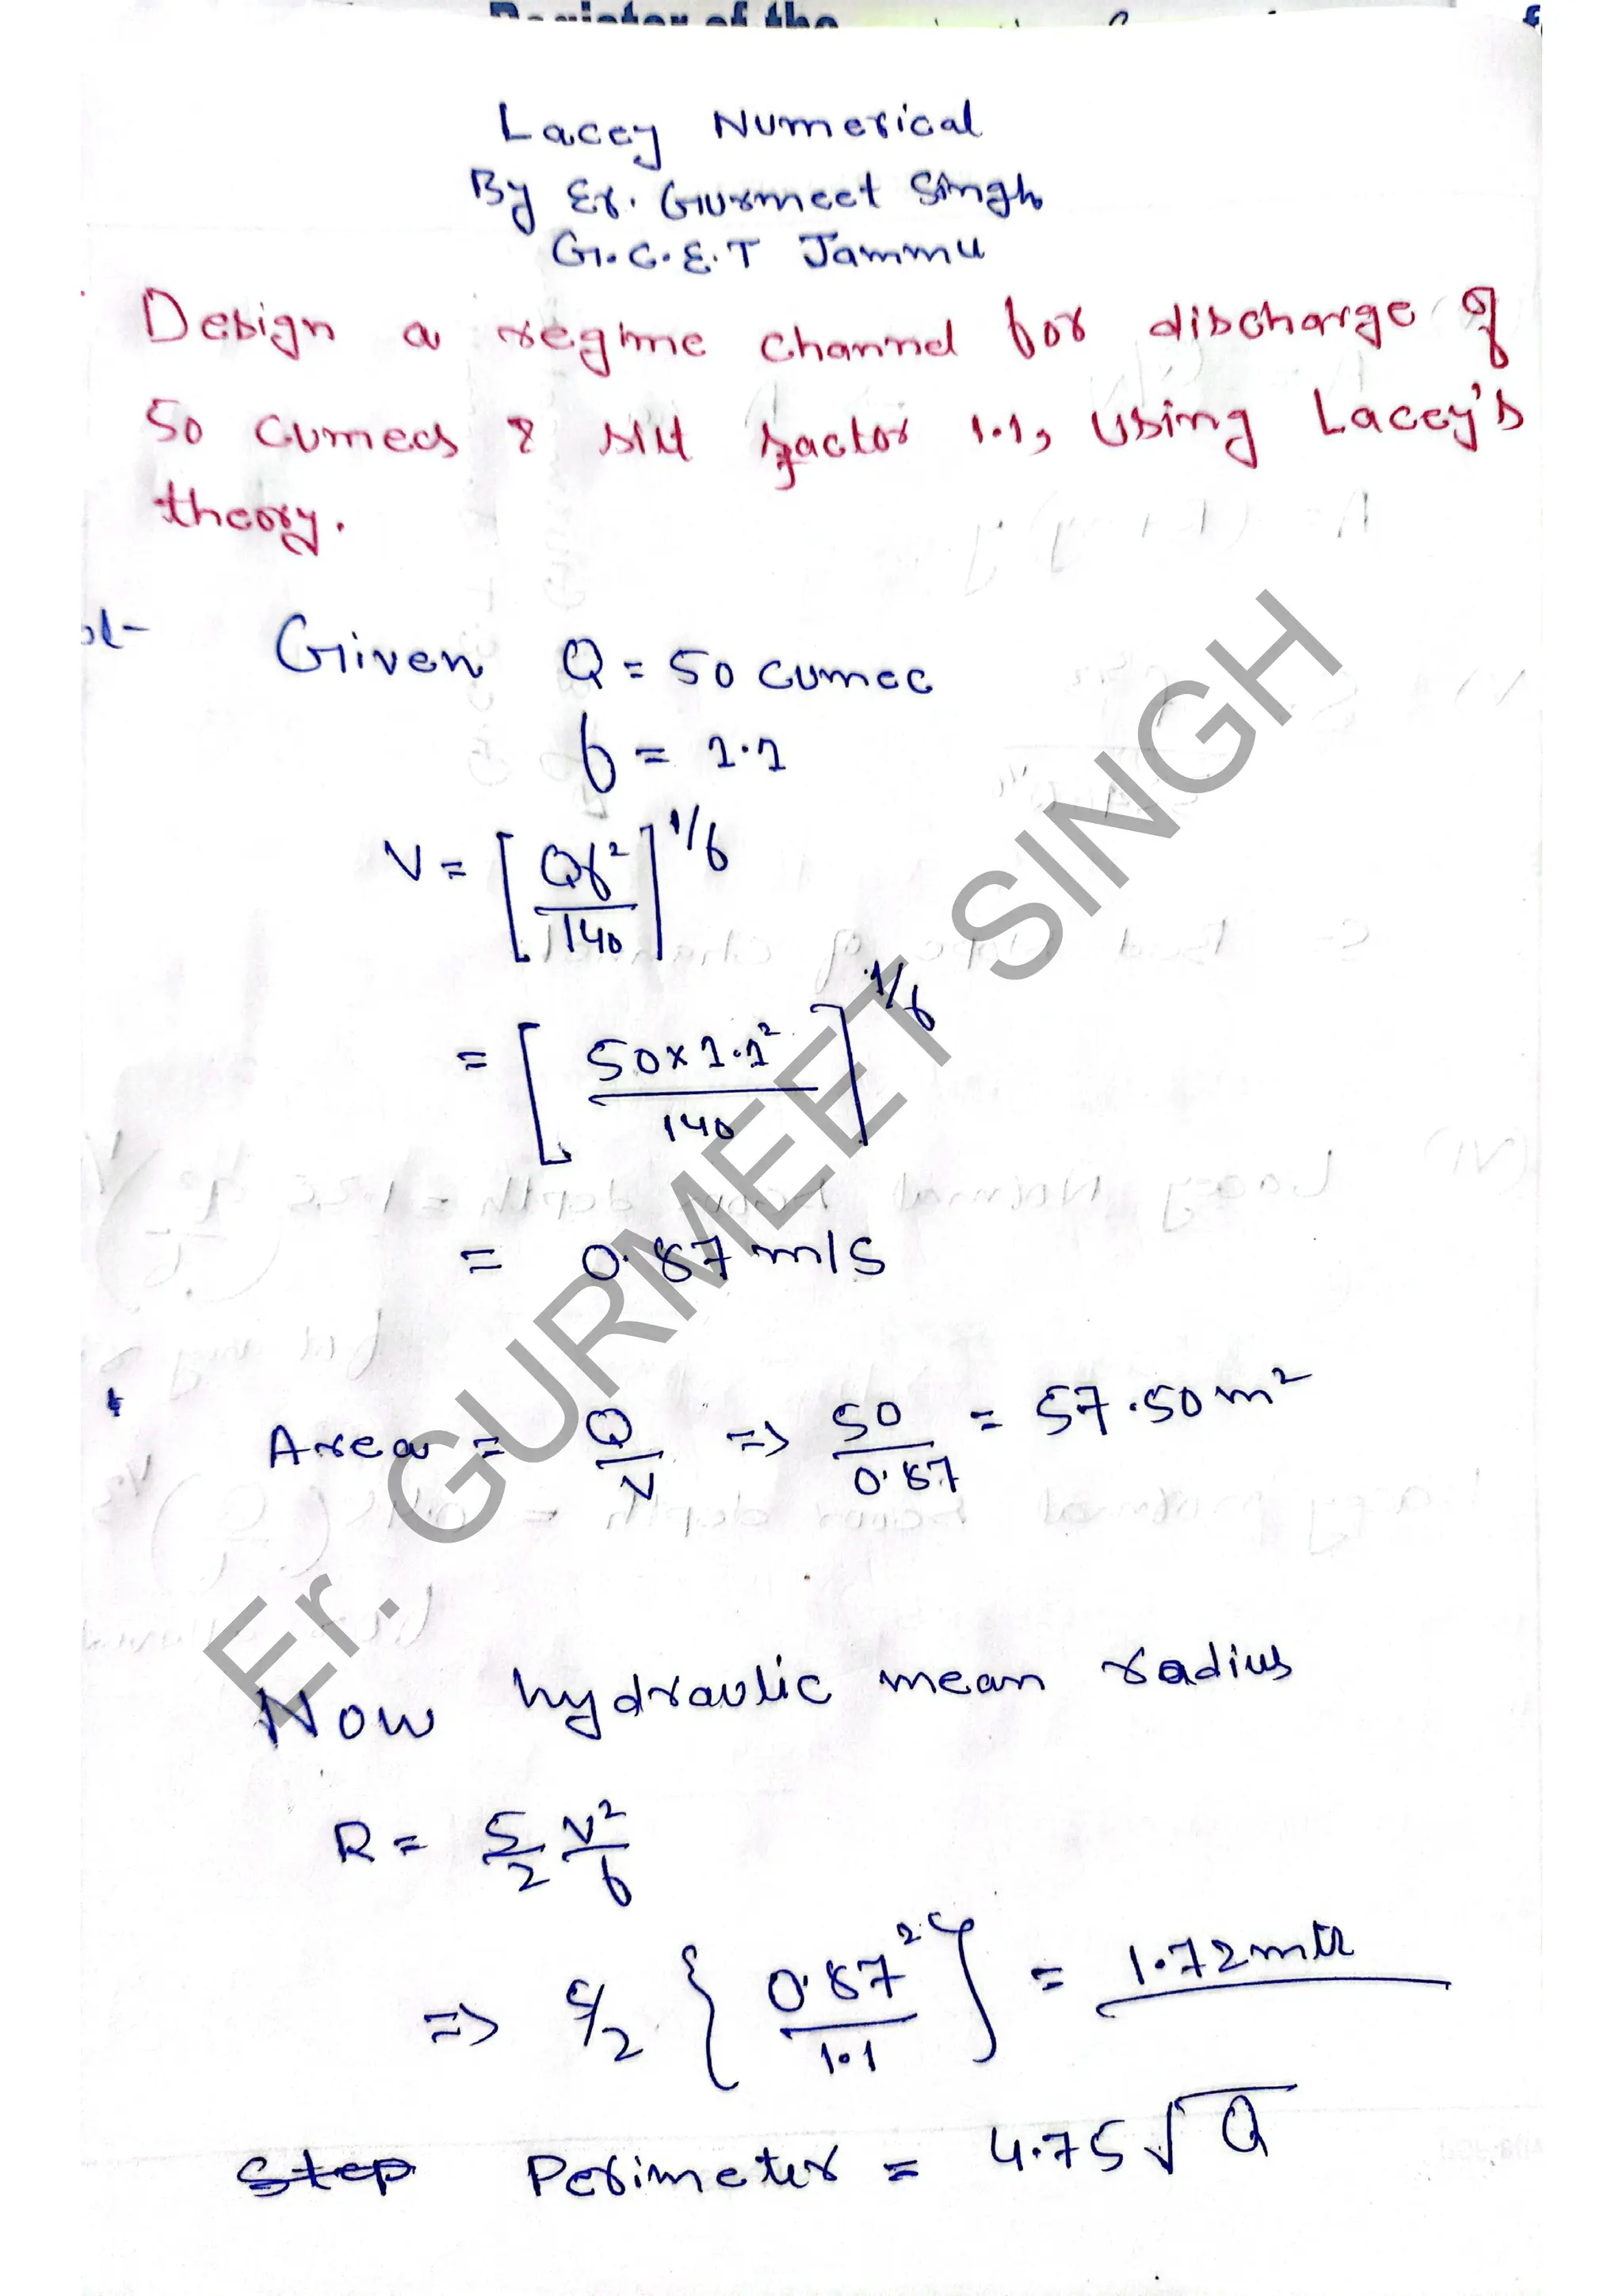 Register of the
Lacey Numerical
By Er. Gurmeet Singh
G.C.E.T Jammu
Design a regime channel for discharge of
50 cumecs & silt factor 1.1, using Lacey's
theory.
ol- Given Q = 50 cumec
f = 1.1
V = [Qf²/140]^1/6
= [50×1.1²/140]^1/6
= 0.87 m/s
Area = Q/V => 50/0.87 = 57.50 m²
Now hydraulic mean radius
R = 5/2 V²/f
=> 5/2 {0.87²/1.1} = 1.72 mtr
Step Perimeter = 4.75 √Q
Er. GURMEET SINGH